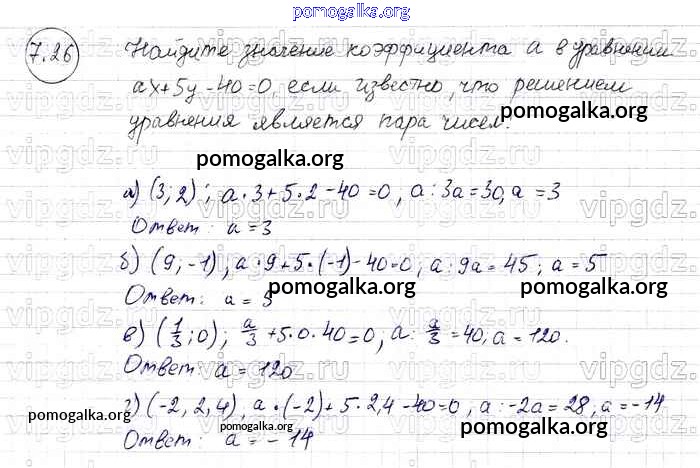 pomogalka.org
7.26
Найдите значение коэффициента а в уравнении
ах+5у-40=0, если известно, что решением
уравнения является пара чисел:
pomogalka.org
pomogalka.org
а) (3; 2); а·3+5·2-40=0, а: 3а=30, а=3
Ответ: а=3
б) (9; -1), а·9+5·(-1)-40=0, а: 9а=45; а=5
Ответ: а=5
pomogalka.org
pomogalka.org
в) (1/3; 0); а/3+5·0·40=0, а: а/3=40, а=120.
Ответ: а=120
г) (-2, 2,4), а·(-2)+5·2,4-40=0, а: -2а=28, а=-14
pomogalka.org
pomogalka.org
pomogalka.org
Ответ: а=-14
vipgdz.ru vipgdz.ru vipgdz.ru vipgdz.ru